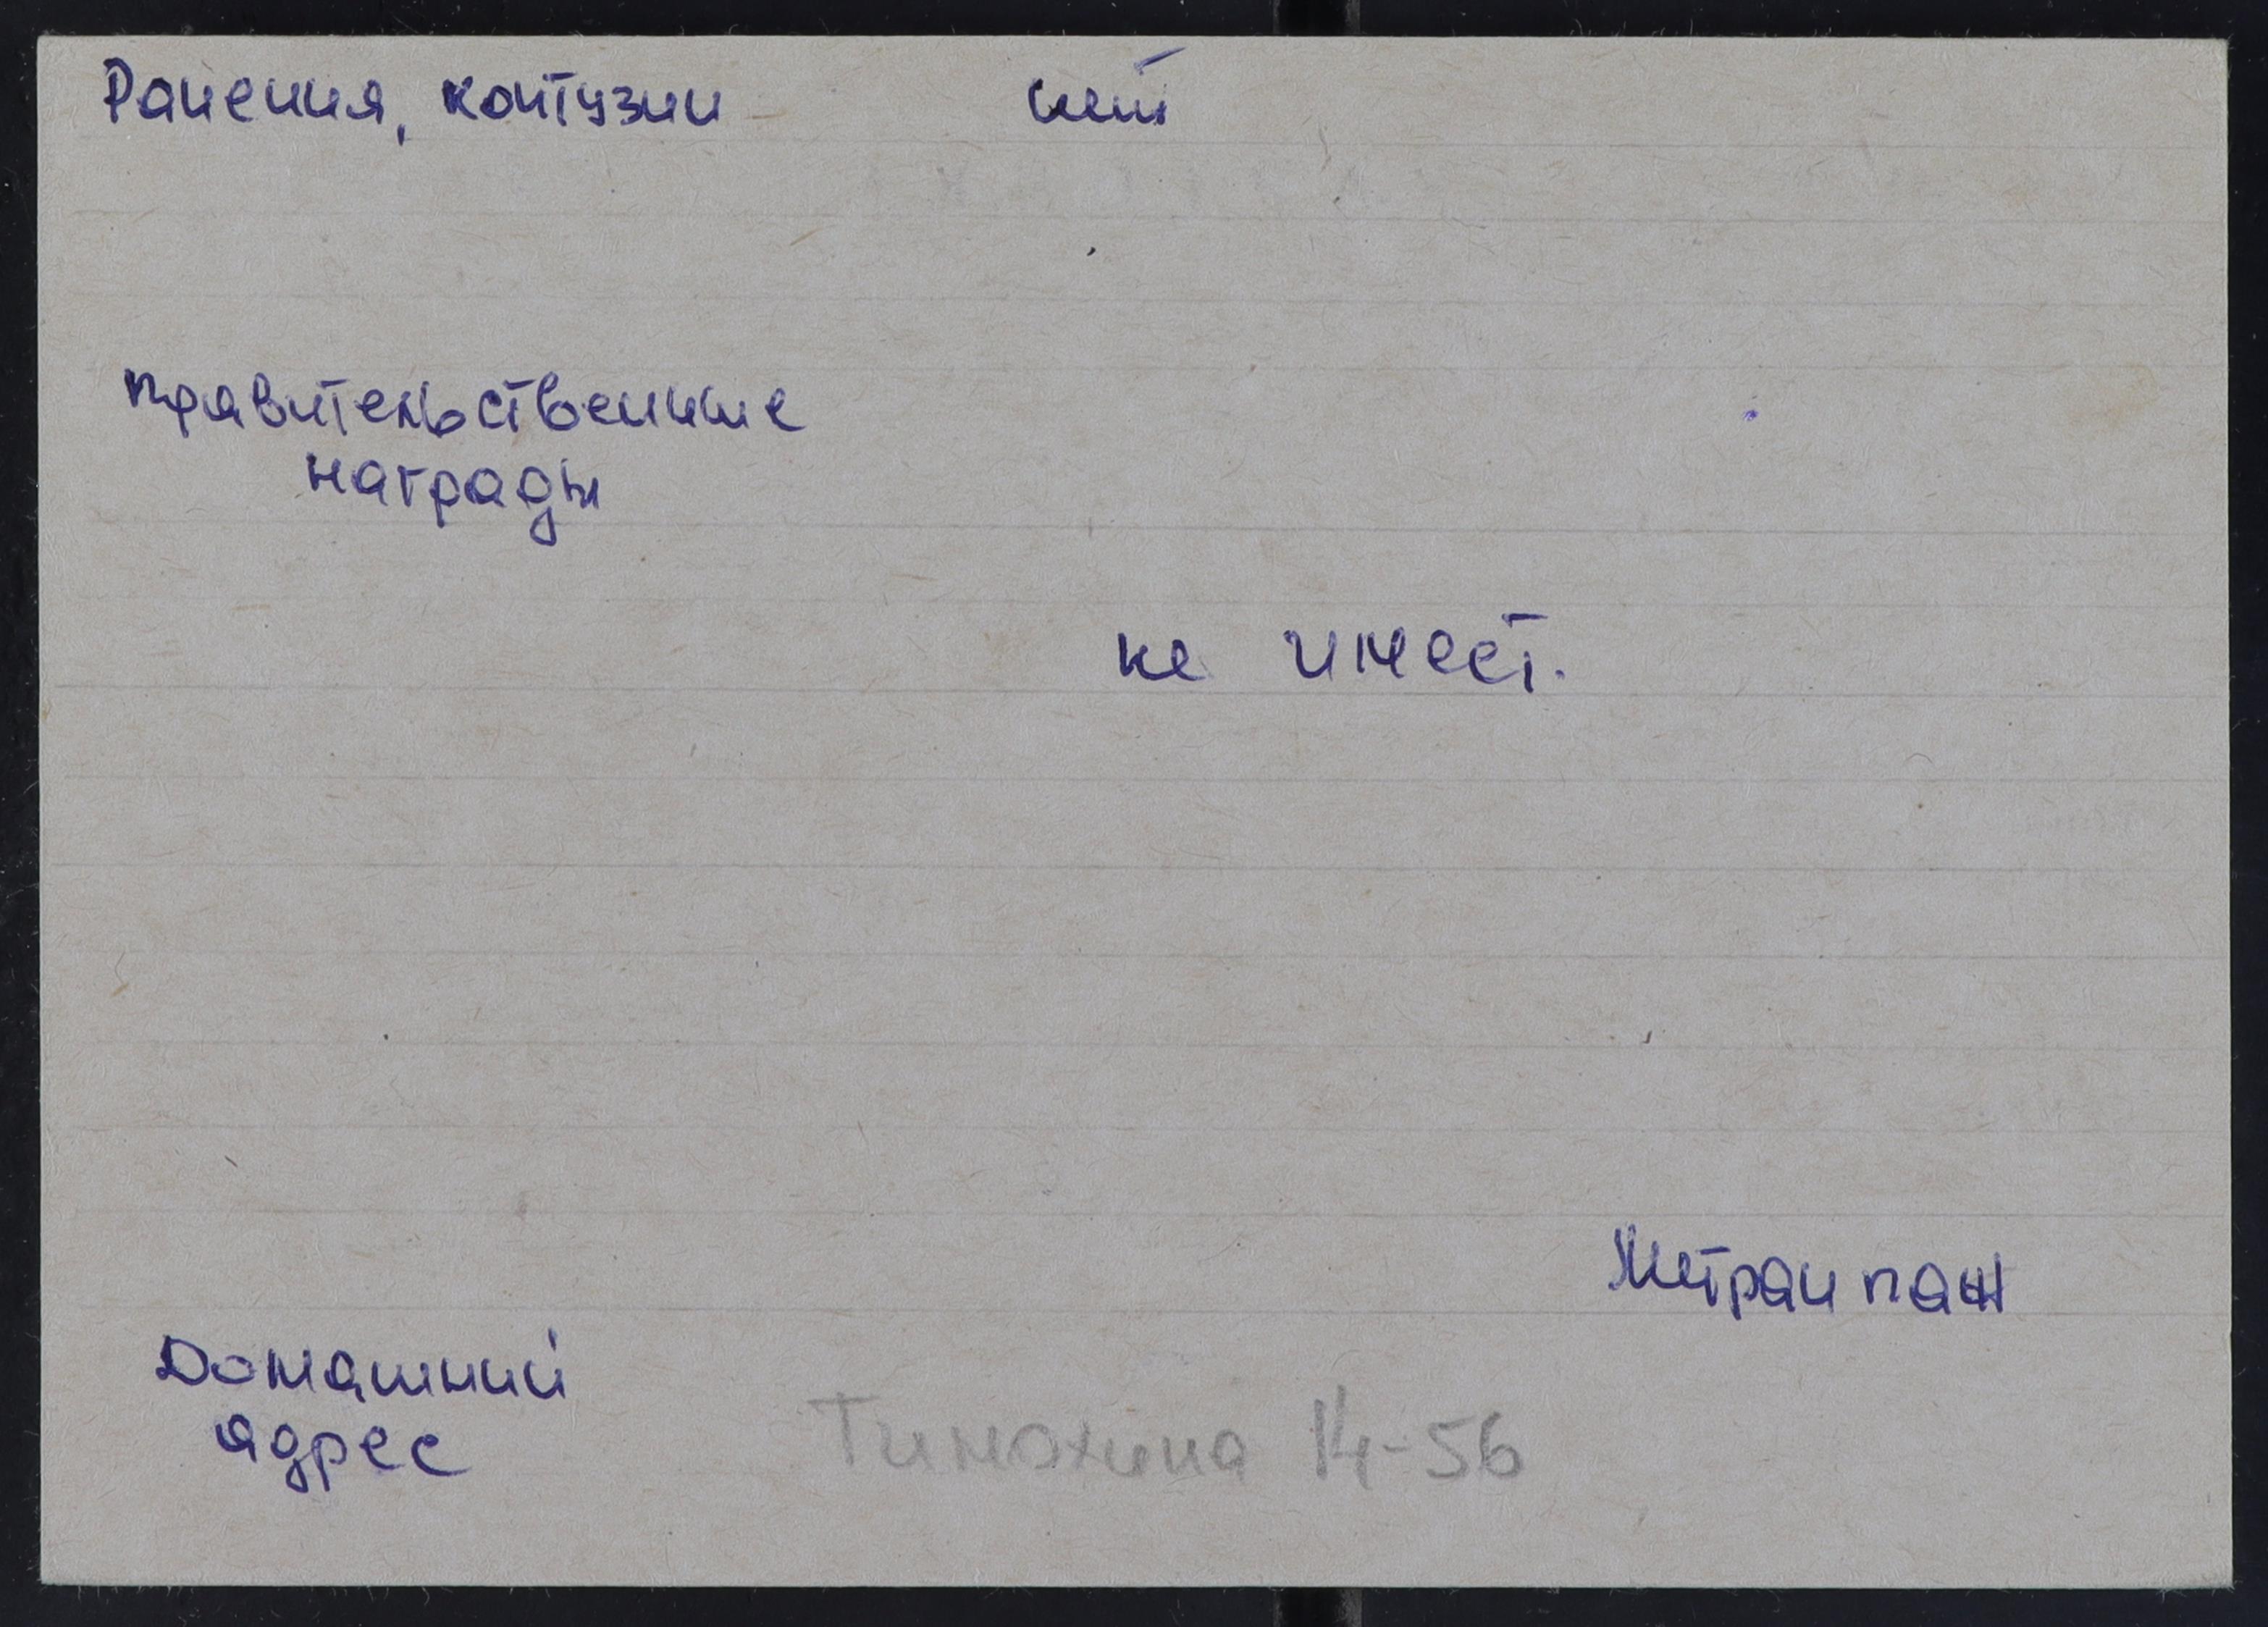 Ранения, контузии нет
правительственные
награды
не имеет.
Метранпаж
Домашний
адрес Тимохина 14-56